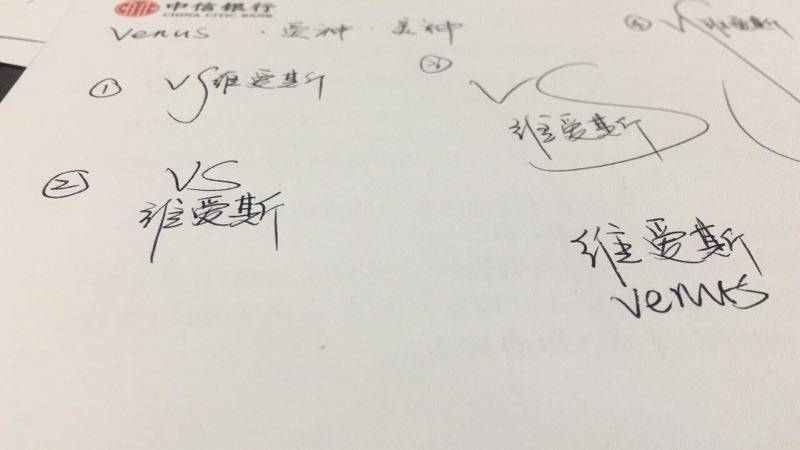 CITIC 中信银行
CHINA CITIC BANK
Venus · 爱神 · 美神
① VS维爱斯
② VS
维爱斯
③ VS
维爱斯
④ VS维爱斯
维爱斯
venus